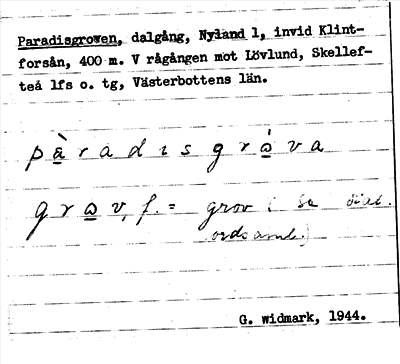 Paradisgroven, dalgång, Nyland 1, invid Klint-
forsån, 400 m. V rågången mot Lövlund, Skellef-
teå lfs o. tg, Västerbottens län.
pàradɩsgrǫ́va
grǫv, f. = grov i sa dial.
ordsaml.)
G. Widmark, 1944.